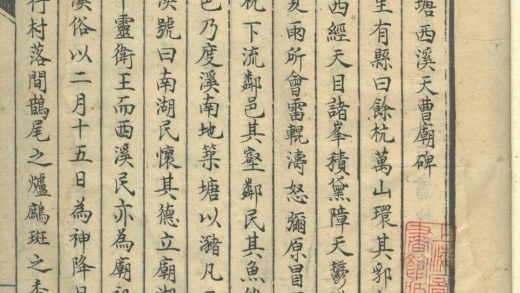 塘西溪天曹廟碑
生有縣曰餘杭萬山環其郭
西經天目諸峯積黛障天
夏雨所會雷輥濤怒彌原冒
杭下流鄰邑其壑鄰民其魚
邑乃度溪南地築塘以瀦凡
溪號曰南湖民懷其德立廟湖
平靈衛王而西溪民亦為廟祀
溪俗以二月十五日為神降日
行村落間鵲尾之爐鷓斑之香